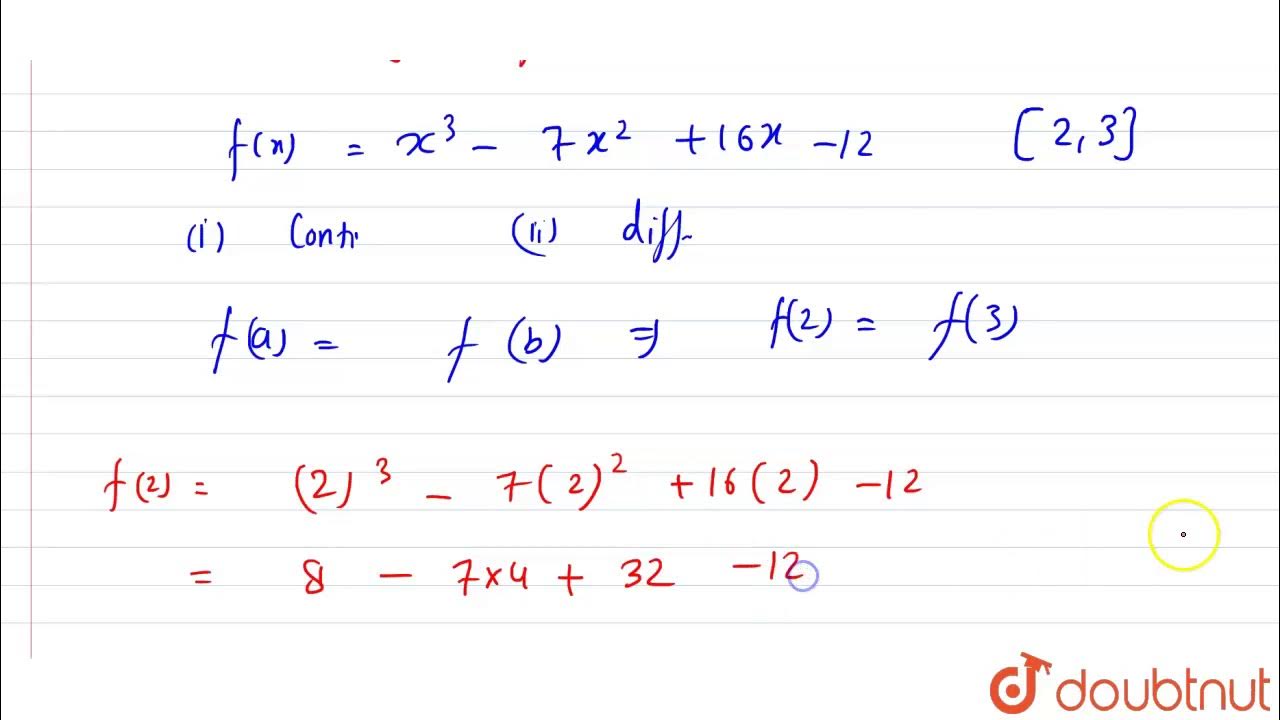 f(x) = x³ - 7x² + 16x - 12 [2, 3]
(i) Conti (ii) diff.
f(a) = f(b) ⇒ f(2) = f(3)
f(2) = (2)³ - 7(2)² + 16(2) - 12
= 8 - 7×4 + 32 - 12
doubtnut